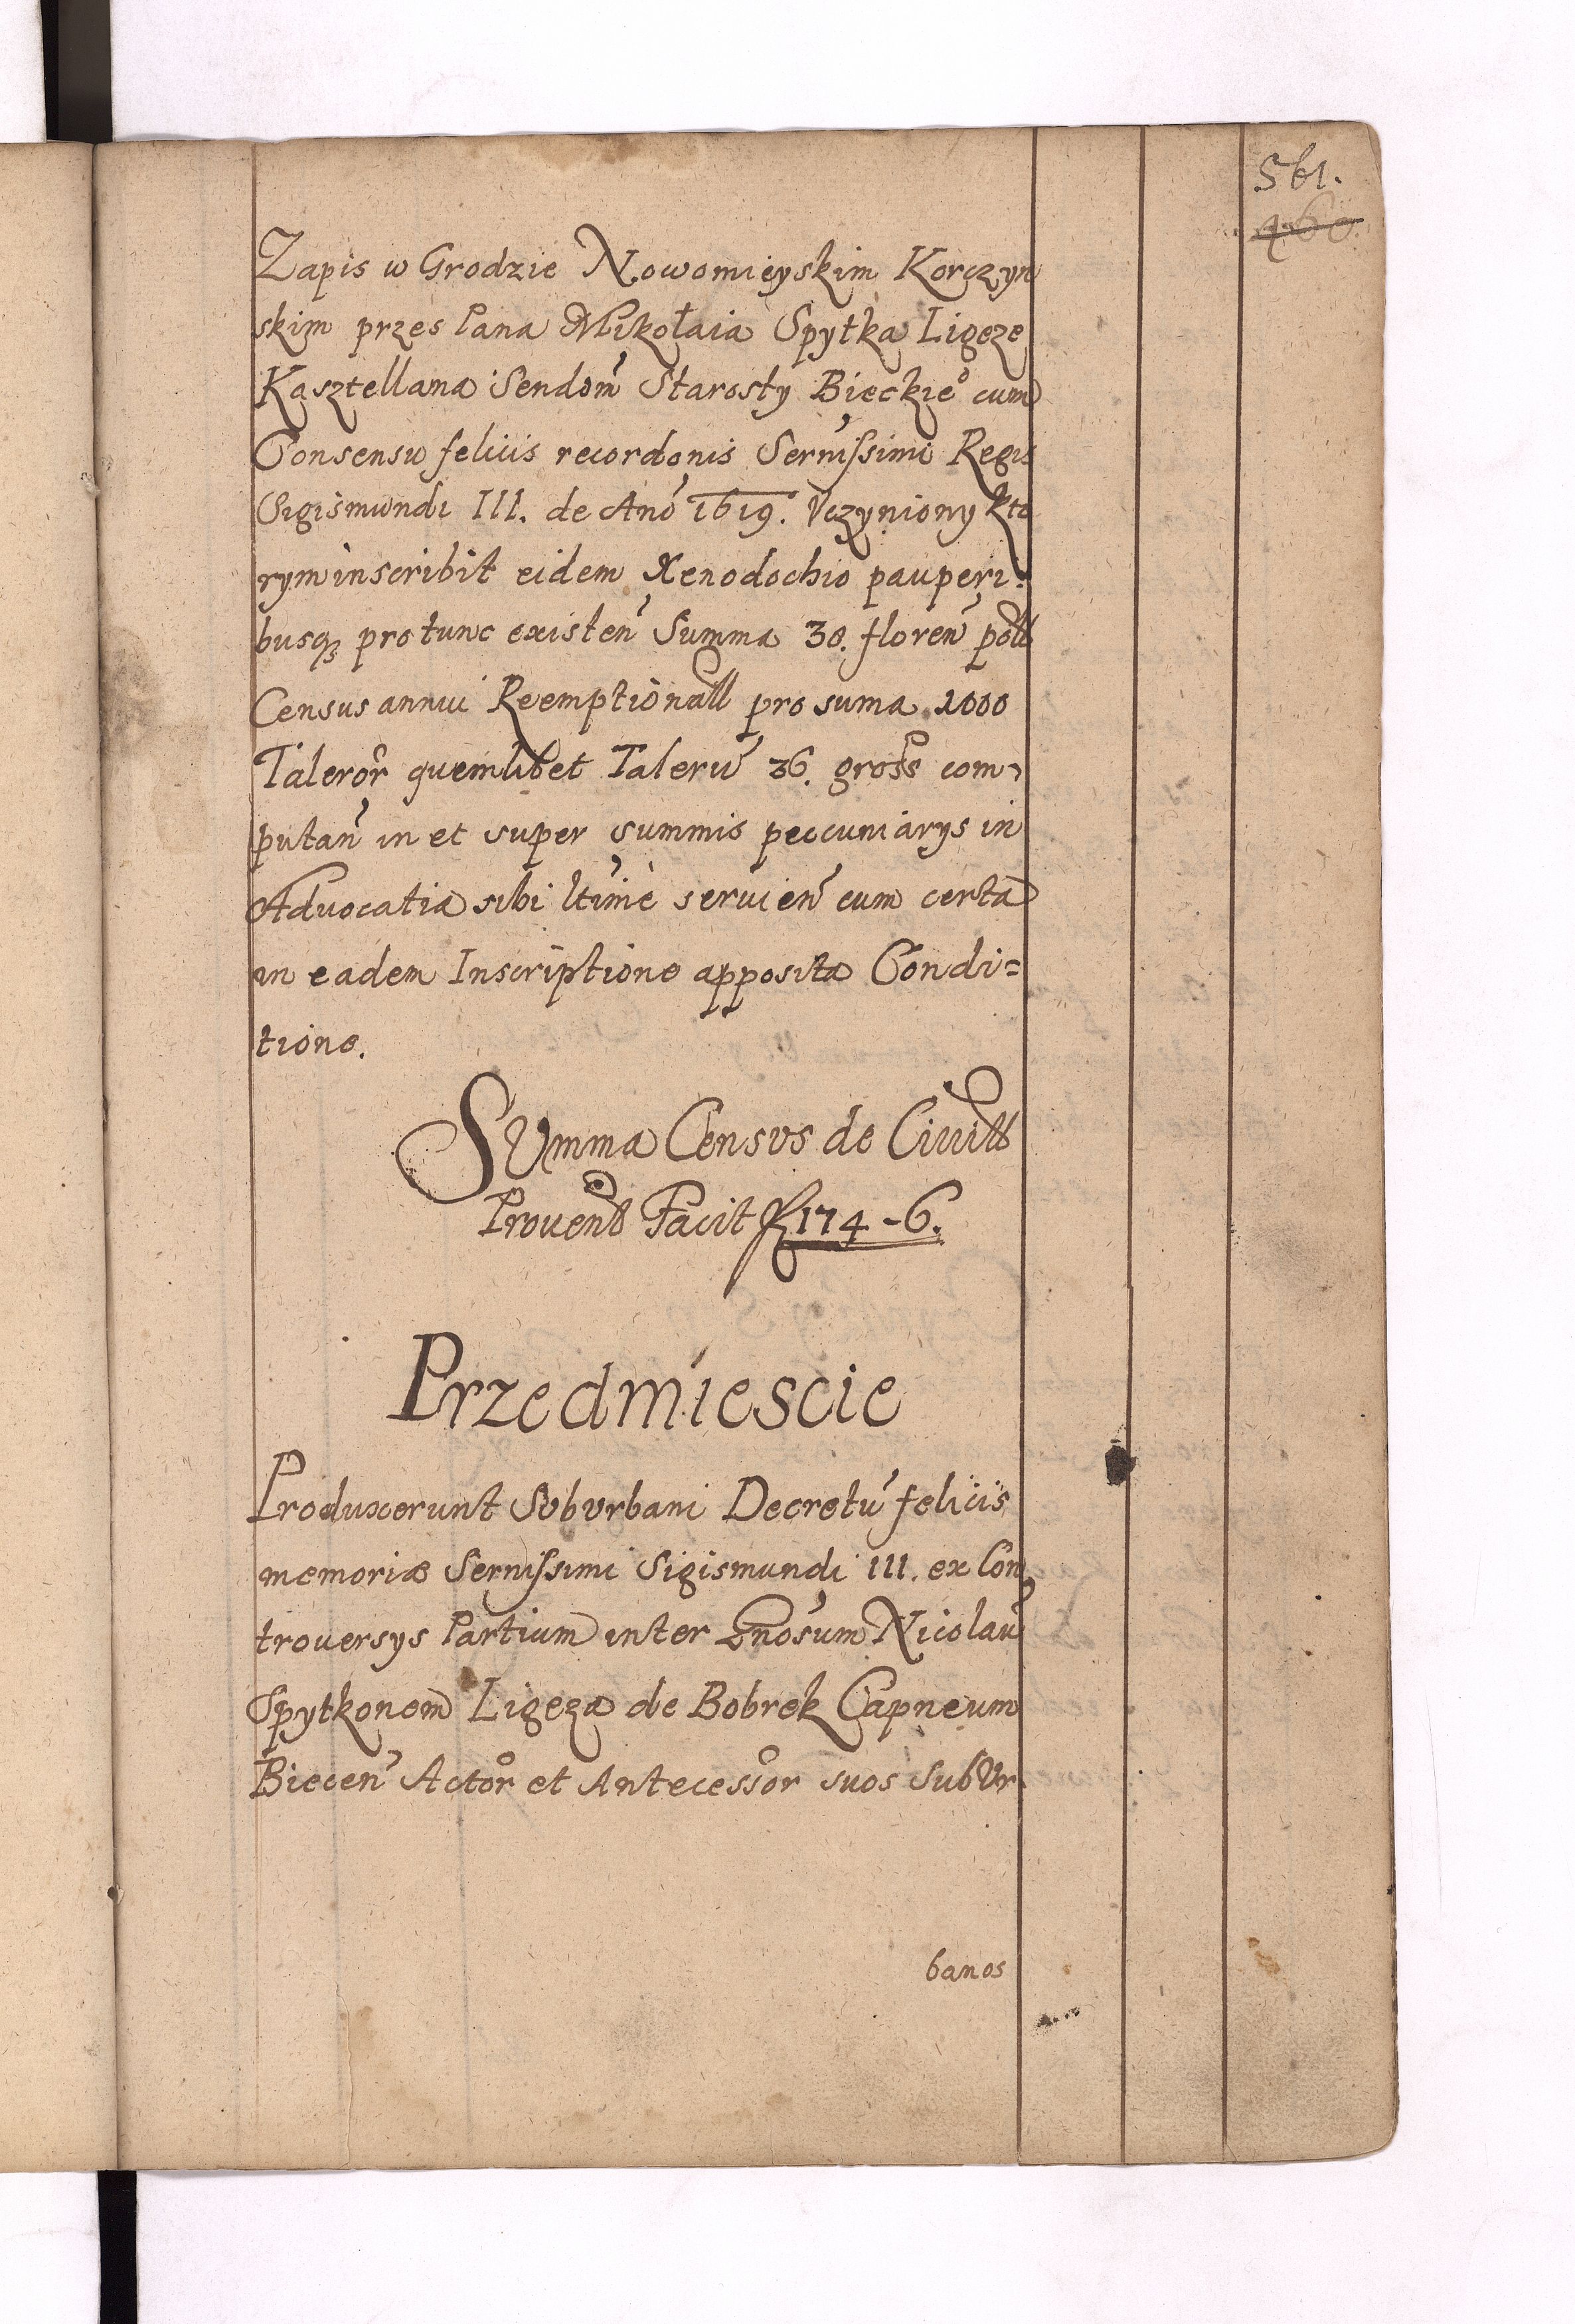 561.
460.
Zapis w Grodzie Nowomieyskim Korczyn
skim przes Pana Mikołaia Spytka Ligeze
Kasztellana Sendom̃ Starosty Bieckieº cum
Consensu felicis recordonis Serniſsimi Regis
Sigismundi III. de Anõ 1619. Vczyniony kto
rym inscribit eidem Xenodochio pauperi:
busq̨ pro tunc existeñ Summa 30. floreñ poll
Census annui Reemptionall pro suma 1000
Taleror quemlibet Talerũ 36. gross com¬
putañ in et super summis peccuniarys in
Advocatia sibi ltime seruieñ cum certa
in eadem Inscriptione apposita Condi=
tione.
SVmma Censvs de Ciuitt
Prouent Facit f 174 - 6.
Przedmiescie
Produxerunt Svbvrbani Decretũ felicis
memoriæ Serniſsimi Sigismundi III. ex Con
trouersys Partium inter Gnosum Nicolaũ
Spytkonem Ligeza de Bobrek Capneum
Bieceñ Actor et Antecessor suos SubVr.
banos